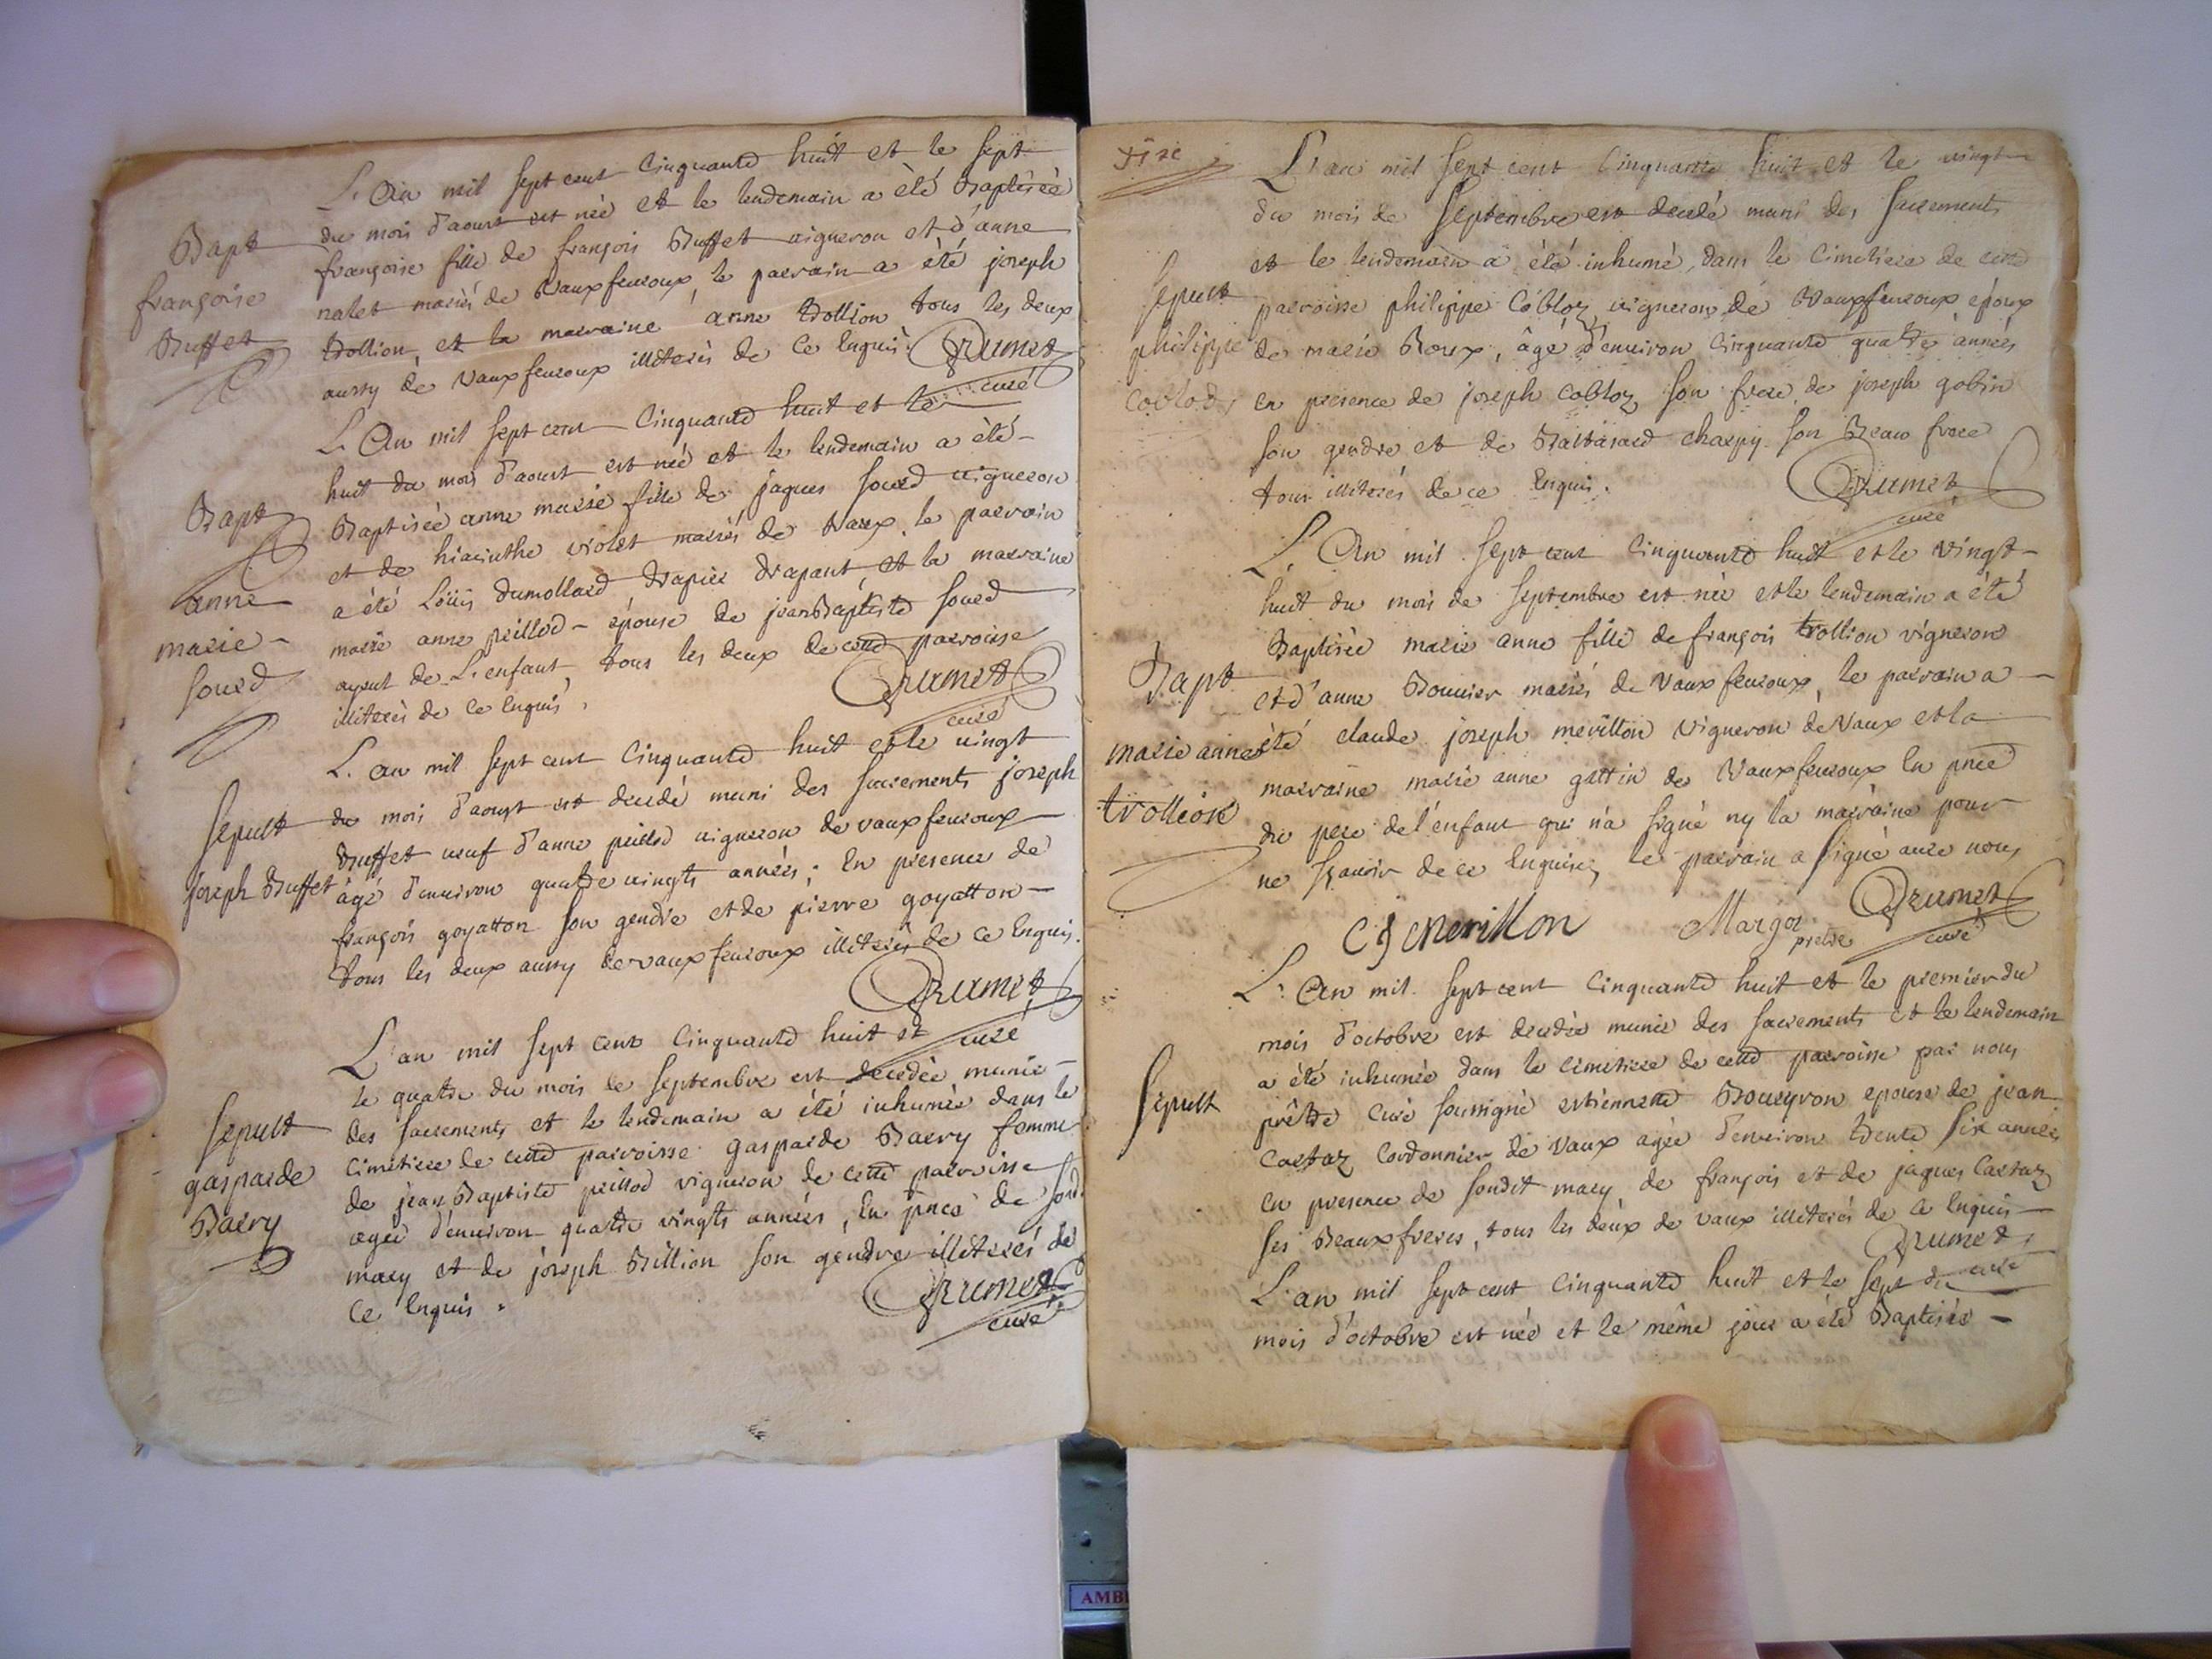 L'An mil sept cent Cinquante huit et le sept
du mois d'aoust est née et le lendemain a été Baptisée
Bapt
françoise
Buffet
françoise fille de françois Buffet vigneron et d'anne
nalet mariés de Vauxfevroux, le parrain a été joseph
trollion, et la marraine anne trollion tous les deux
aussy de Vauxfevroux illiterés de ce Enquis. Brumet
curé
L'An mil sept cent Cinquante huit et le
huit du mois d'aoust est née et le lendemain a été
Bapt
anne
marie
sourd
Baptisée anne marie fille de jaques sourd vigneron
et de hiacinthe violet mariés de Vaux, le parrain
a été Loüis dumollard, drapier drapant, et la marraine
marie anne peillod épouse de jean Baptiste sourd
ayeut de L'enfant, tous les deux de cette parroisse
illiterés de ce Enquis. Brumet
curé
L'an mil sept cent Cinquante huit et le vingt
sepult
joseph Buffet
du mois d'aoust est decedé muni des sacrements joseph
Buffet veuf d'anne peillod vigneron de vauxfevroux
âgé d'environ quatre vingts années; En presence de
françois goyatton son gendre et de pierre goyatton
tous les deux aussy de vauxfevroux illiterés de ce Enquis.
Brumet
curé
L'an mil sept cent Cinquante huit et
le quatre du mois de septembre est decedée munie
sepult
gasparde
Barry
des sacrements et le lendemain a été inhumée dans le
cimetiere de cette parroisse gasparde Barry femme
de jean Baptiste peillod vigneron de cette parroisse
agée d'environ quatre vingts années, En pnce de sondt
mary et de joseph Billion son gendre illiterés de
ce Enquis. Brumet
curé
L'an mil sept cent Cinquante huit et le vingt
du mois de septembre est decedé muni des sacrements
et le lendemain a été inhumé, dans le Cimetiere de cette
sepult
philippe
Cobloz
parroisse philippe Cobloz, vigneron de Vauxfevroux époux
de marie Roux, âgé d'environ Cinquante quatre années
en presence de joseph Cobloz son frere, de joseph gobin
son gendre et de Baltazard charpy son Beau frere
tous illiterés de ce Enquis. Brumet
curé
L'An mil sept cent Cinquante huit et le vingt
huit du mois de septembre est née et le lendemain a été
Bapt
marie anne
trollion
Baptisée marie anne fille de françois trollion vigneron
et d'anne Bouvier mariés de Vauxfevroux, le parrain a
été claude joseph merillon vigneron de Vaux et la
marraine marie anne guttin de Vauxfevroux En pnce
du pere de l'enfant qui n'a signé ny la marraine pour
ne sçavoir de ce Enquises, le parrain a signé avec nous
C j merillon Margot prêtre Brumet
curé
L'An mil sept cent Cinquante huit et le premier du
mois d'octobre est decedée munie des sacrements et le lendemain
a été inhumée dans le cimetiere de cette parroisse par nous
sepult
prêtre Curé soussigné estiennette Bouvyron epouse de jean
Costaz Cordonnier de Vaux agée d'environ trente six années
en presence de sondit mary, de françois et de jaques Costaz
ses Beauxfreres, tous les deux de vaux illiterés de ce Enquis
Brumet
curé
L'an mil sept cent Cinquante huit et le sept du
mois d'octobre est née et le même jour a été Baptisée
AMB